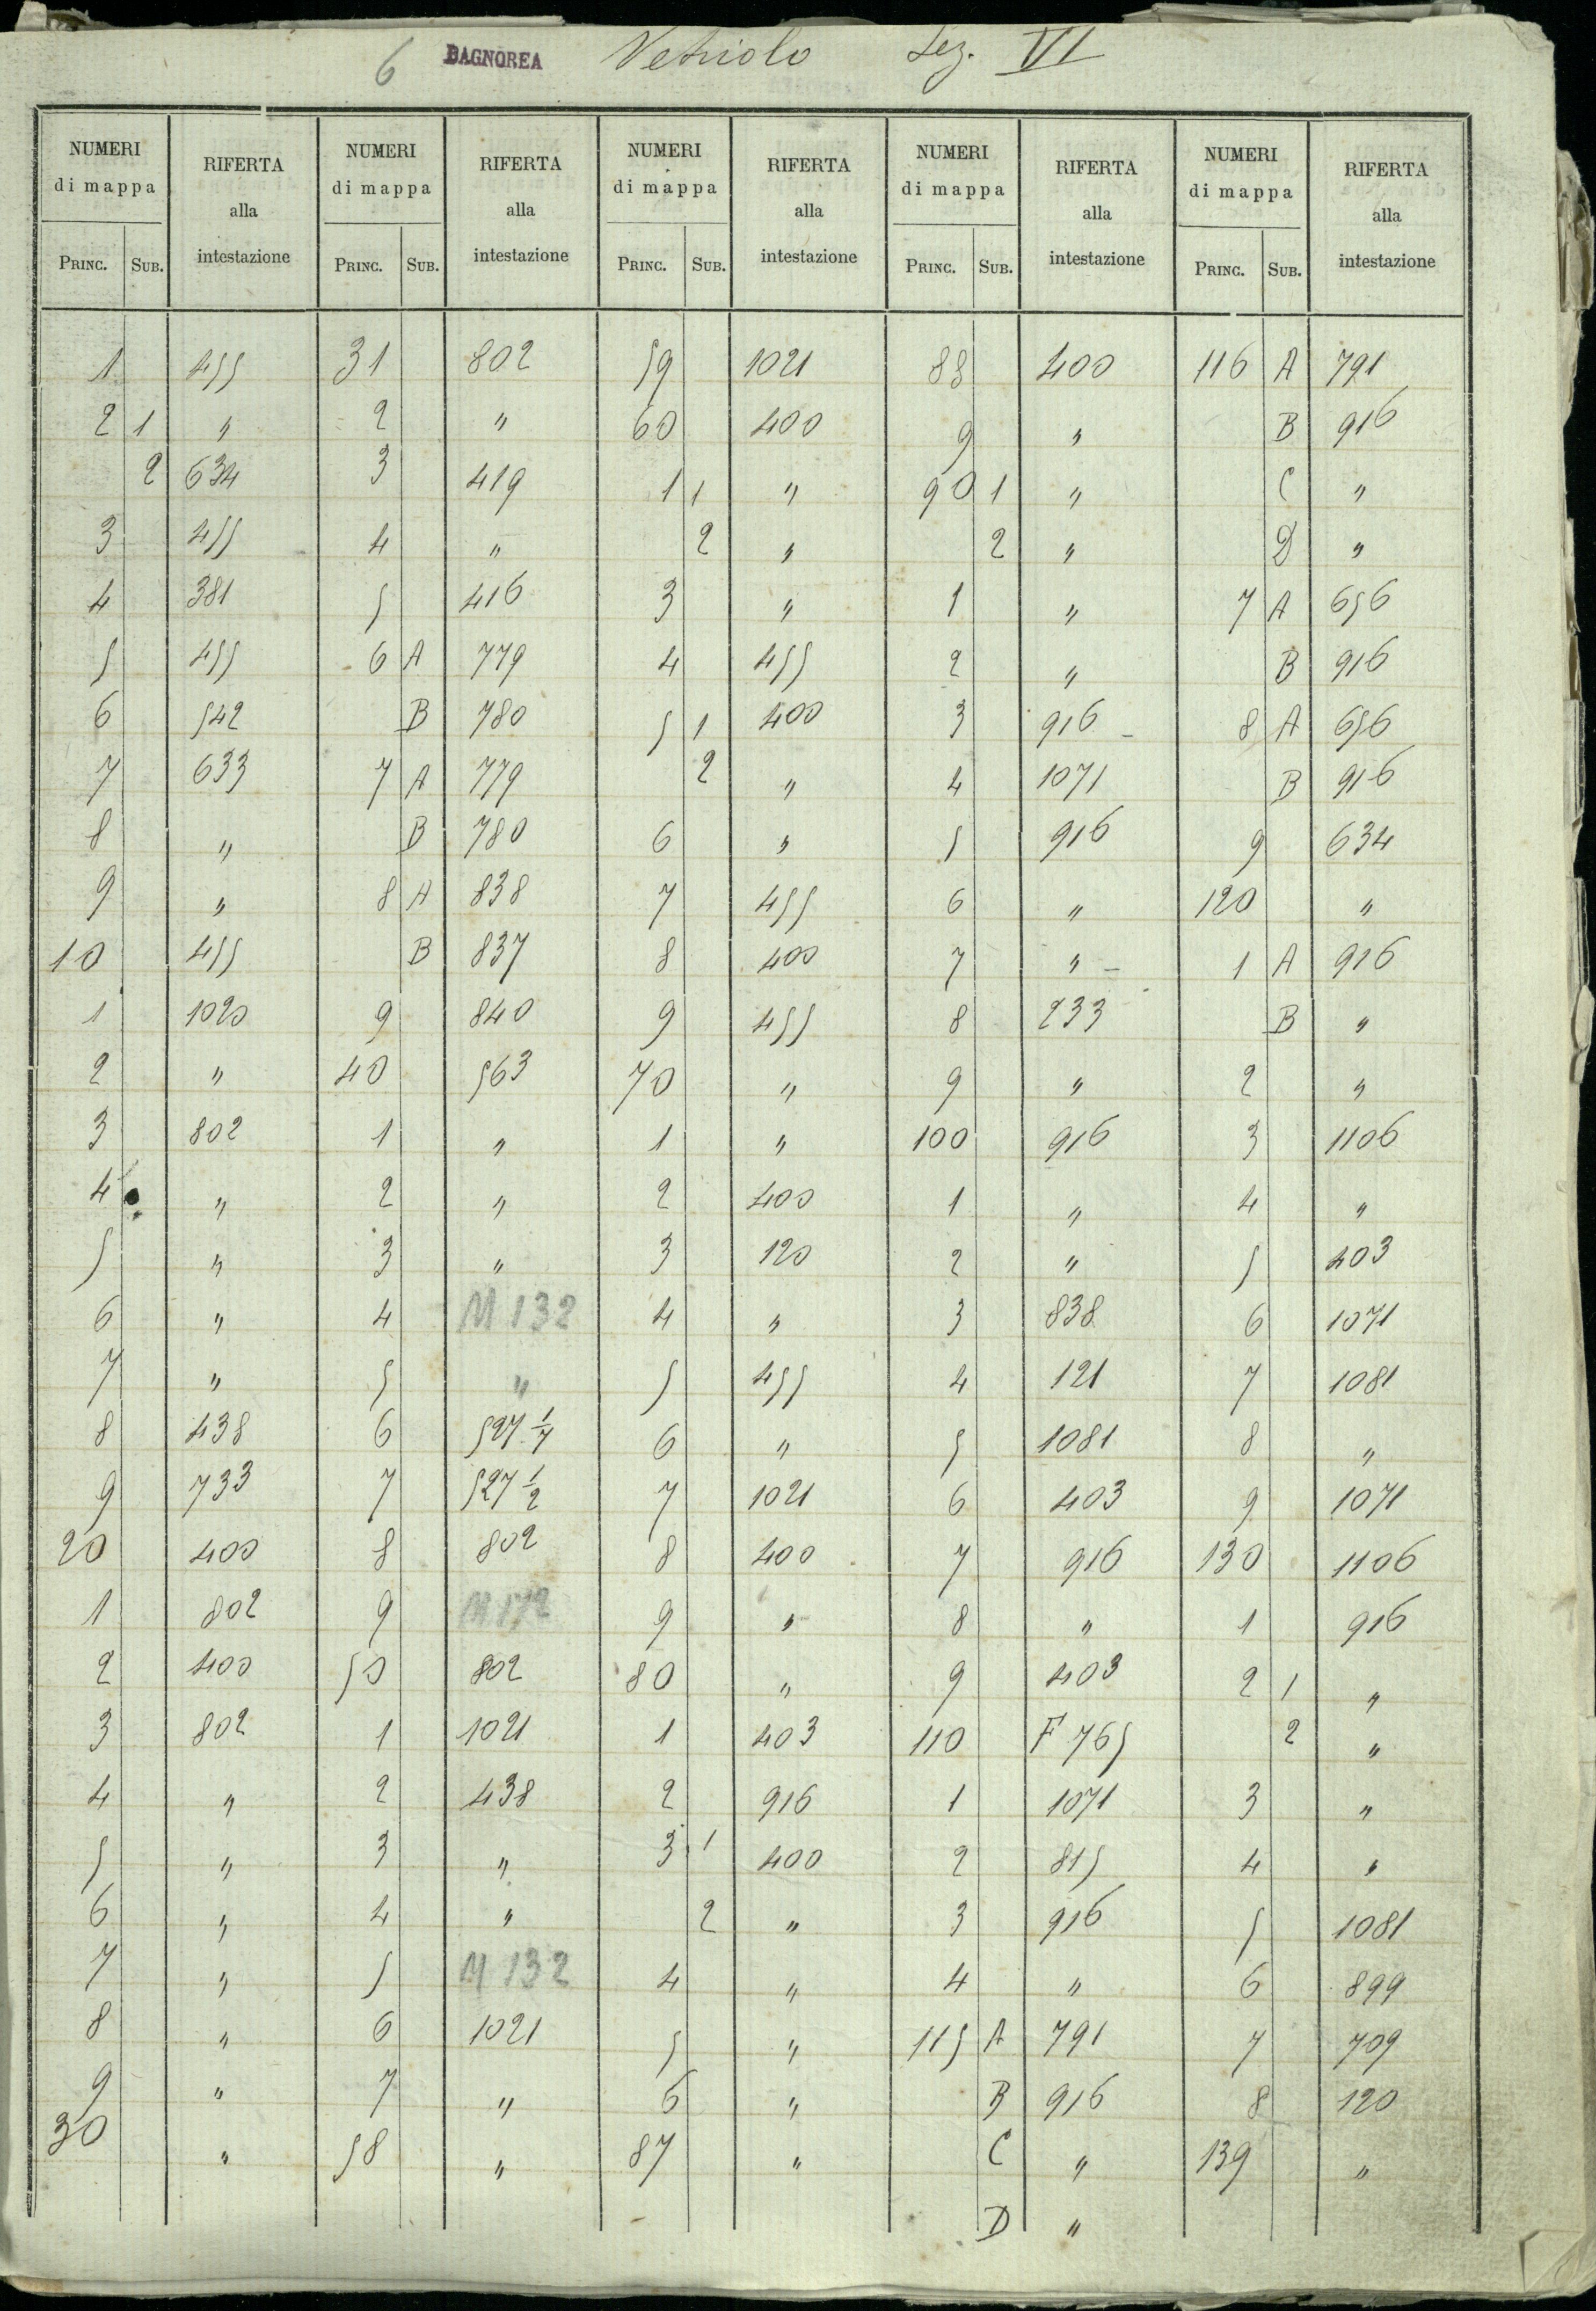 6 BAGNOREA Vetriolo Sez. VI
NUMERI di mappa RIFERTA alla intestazione NUMERI di mappa RIFERTA alla intestazione NUMERI di mappa RIFERTA alla intestazione NUMERI di mappa RIFERTA alla intestazione NUMERI di mappa RIFERTA alla intestazione
PRINC. SUB. PRINC. SUB. PRINC. SUB. PRINC. SUB. PRINC. SUB.
1 455 31 802 59 1021 88 400 116 A 791
2 1 " 2 " 60 400 9 " B 916
2 634 3 419 1 1 " 90 1 " C "
3 455 4 " 2 " 2 " D "
4 381 5 416 3 " 1 " 7 A 656
5 455 6 A 779 4 455 2 " B 916
6 542 B 780 5 1 400 3 916 8 A 656
7 633 7 A 779 2 " 4 1071 B 916
8 " B 780 6 " 5 916 9 634
9 " 8 A 838 7 455 6 " 120 "
10 455 B 837 8 400 7 " 1 A 916
1 1020 9 840 9 455 8 233 B "
2 " 40 563 70 " 9 " 2 "
3 802 1 " 1 " 100 916 3 1106
4 " 2 " 2 400 1 " 4 "
5 " 3 " 3 120 2 " 5 403
6 " 4 M 132 4 " 3 838 6 1071
7 " 5 " 5 455 4 121 7 1081
8 438 6 527 1/7 6 " 5 1081 8 "
9 733 7 527 1/2 7 1021 6 403 9 1071
20 400 8 802 8 400 7 916 130 1106
1 802 9 9 " 8 " 1 916
2 400 50 802 80 " 9 403 2 1 "
3 802 1 1021 1 403 110 F 765 2 "
4 " 2 438 2 916 1 1071 3 "
5 " 3 " 3 1 400 2 815 4 "
6 " 4 " 2 " 3 916 5 1081
7 " 5 M 132 4 " 4 " 6 899
8 " 6 1021 5 " 115 A 791 7 709
9 " 7 " 6 " B 916 8 120
30 " 58 " 87 " C " 139 "
D "